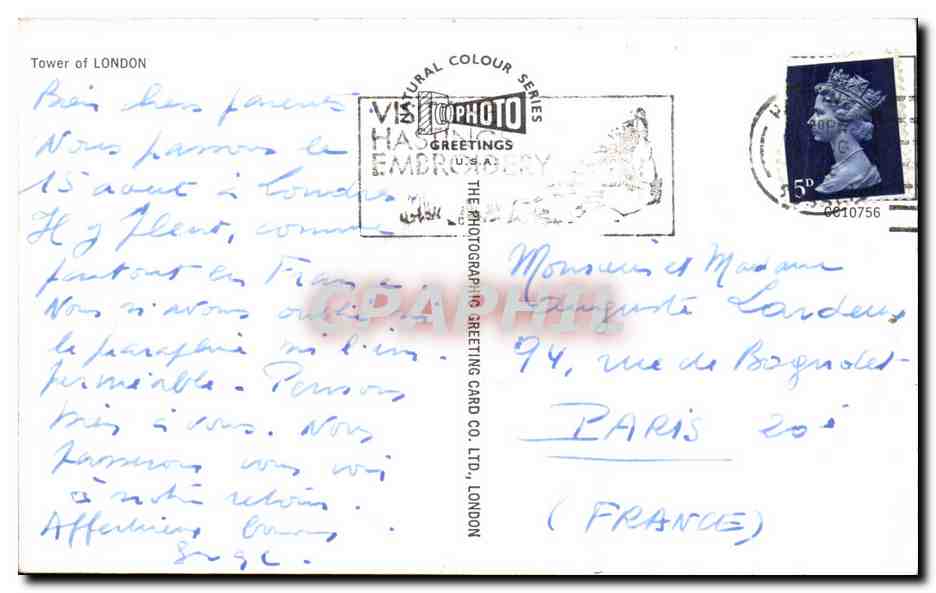 Tower of LONDON
Bien chers parents
Nous passons le
15 aout à Londres
Il y pleut, comme
partout en France.
Nous n'avons oublié ni
le parapluie ni l'im-
perméable. Pensons
bien à vous. Nous
passerons vous voir
à notre retour.
Affectueux
NATURAL COLOUR SERIES
PHOTO
GREETINGS
U.S.A.
HASTINGS
EMBROIDERY
THE PHOTOGRAPHIC GREETING CARD CO. LTD., LONDON
5D
CC10756
CPAPHIL
Monsieur et Madame
Auguste Lardeux
94, rue de Bagnolet
PARIS 20è
(FRANCE)